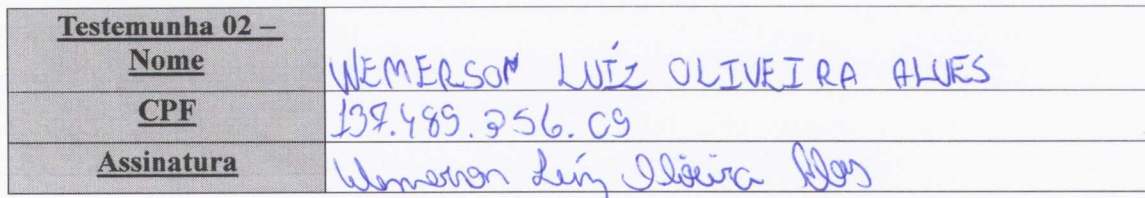 Testemunha 02 –
Nome
WEMERSON LUÍZ OLIVEIRA ALVES
CPF
Assinatura
Wemerson Luíz Oliveira Alves